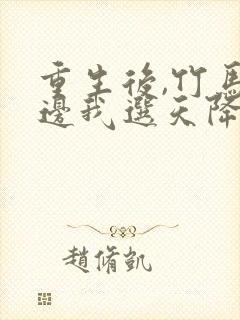 重生後,竹馬
邊我選天降
趙脩凱